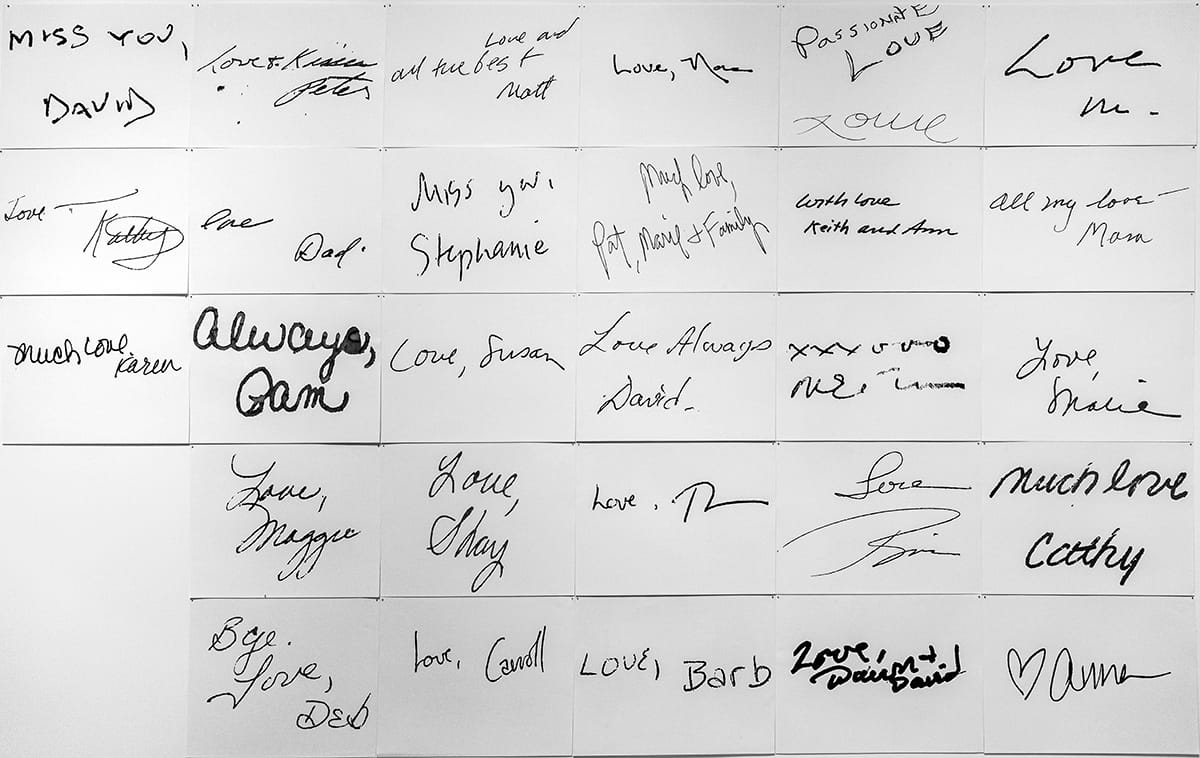 MISS YOU,
DAVID
Love & Kisses
Peter
Love and
all the best
Matt
Love,
PASSIONATE
LOVE
Love
m.
Love —
Kathy
love
Dad.
Miss you,
Stephanie
Much love,
Pat, Marie & Family
With love
Keith and Ann
All my love —
Mom
Much love
Karen
Always,
Pam
Love, Susan
Love Always
David
xxx ooo
Love,
Marie
Love,
Maggie
Love,
Shay
Love,
Love
Much love
Cathy
Bye.
Love,
DEB
Love, Carroll
LOVE, Barb
Love,
Dawn +
David
♡ Anna